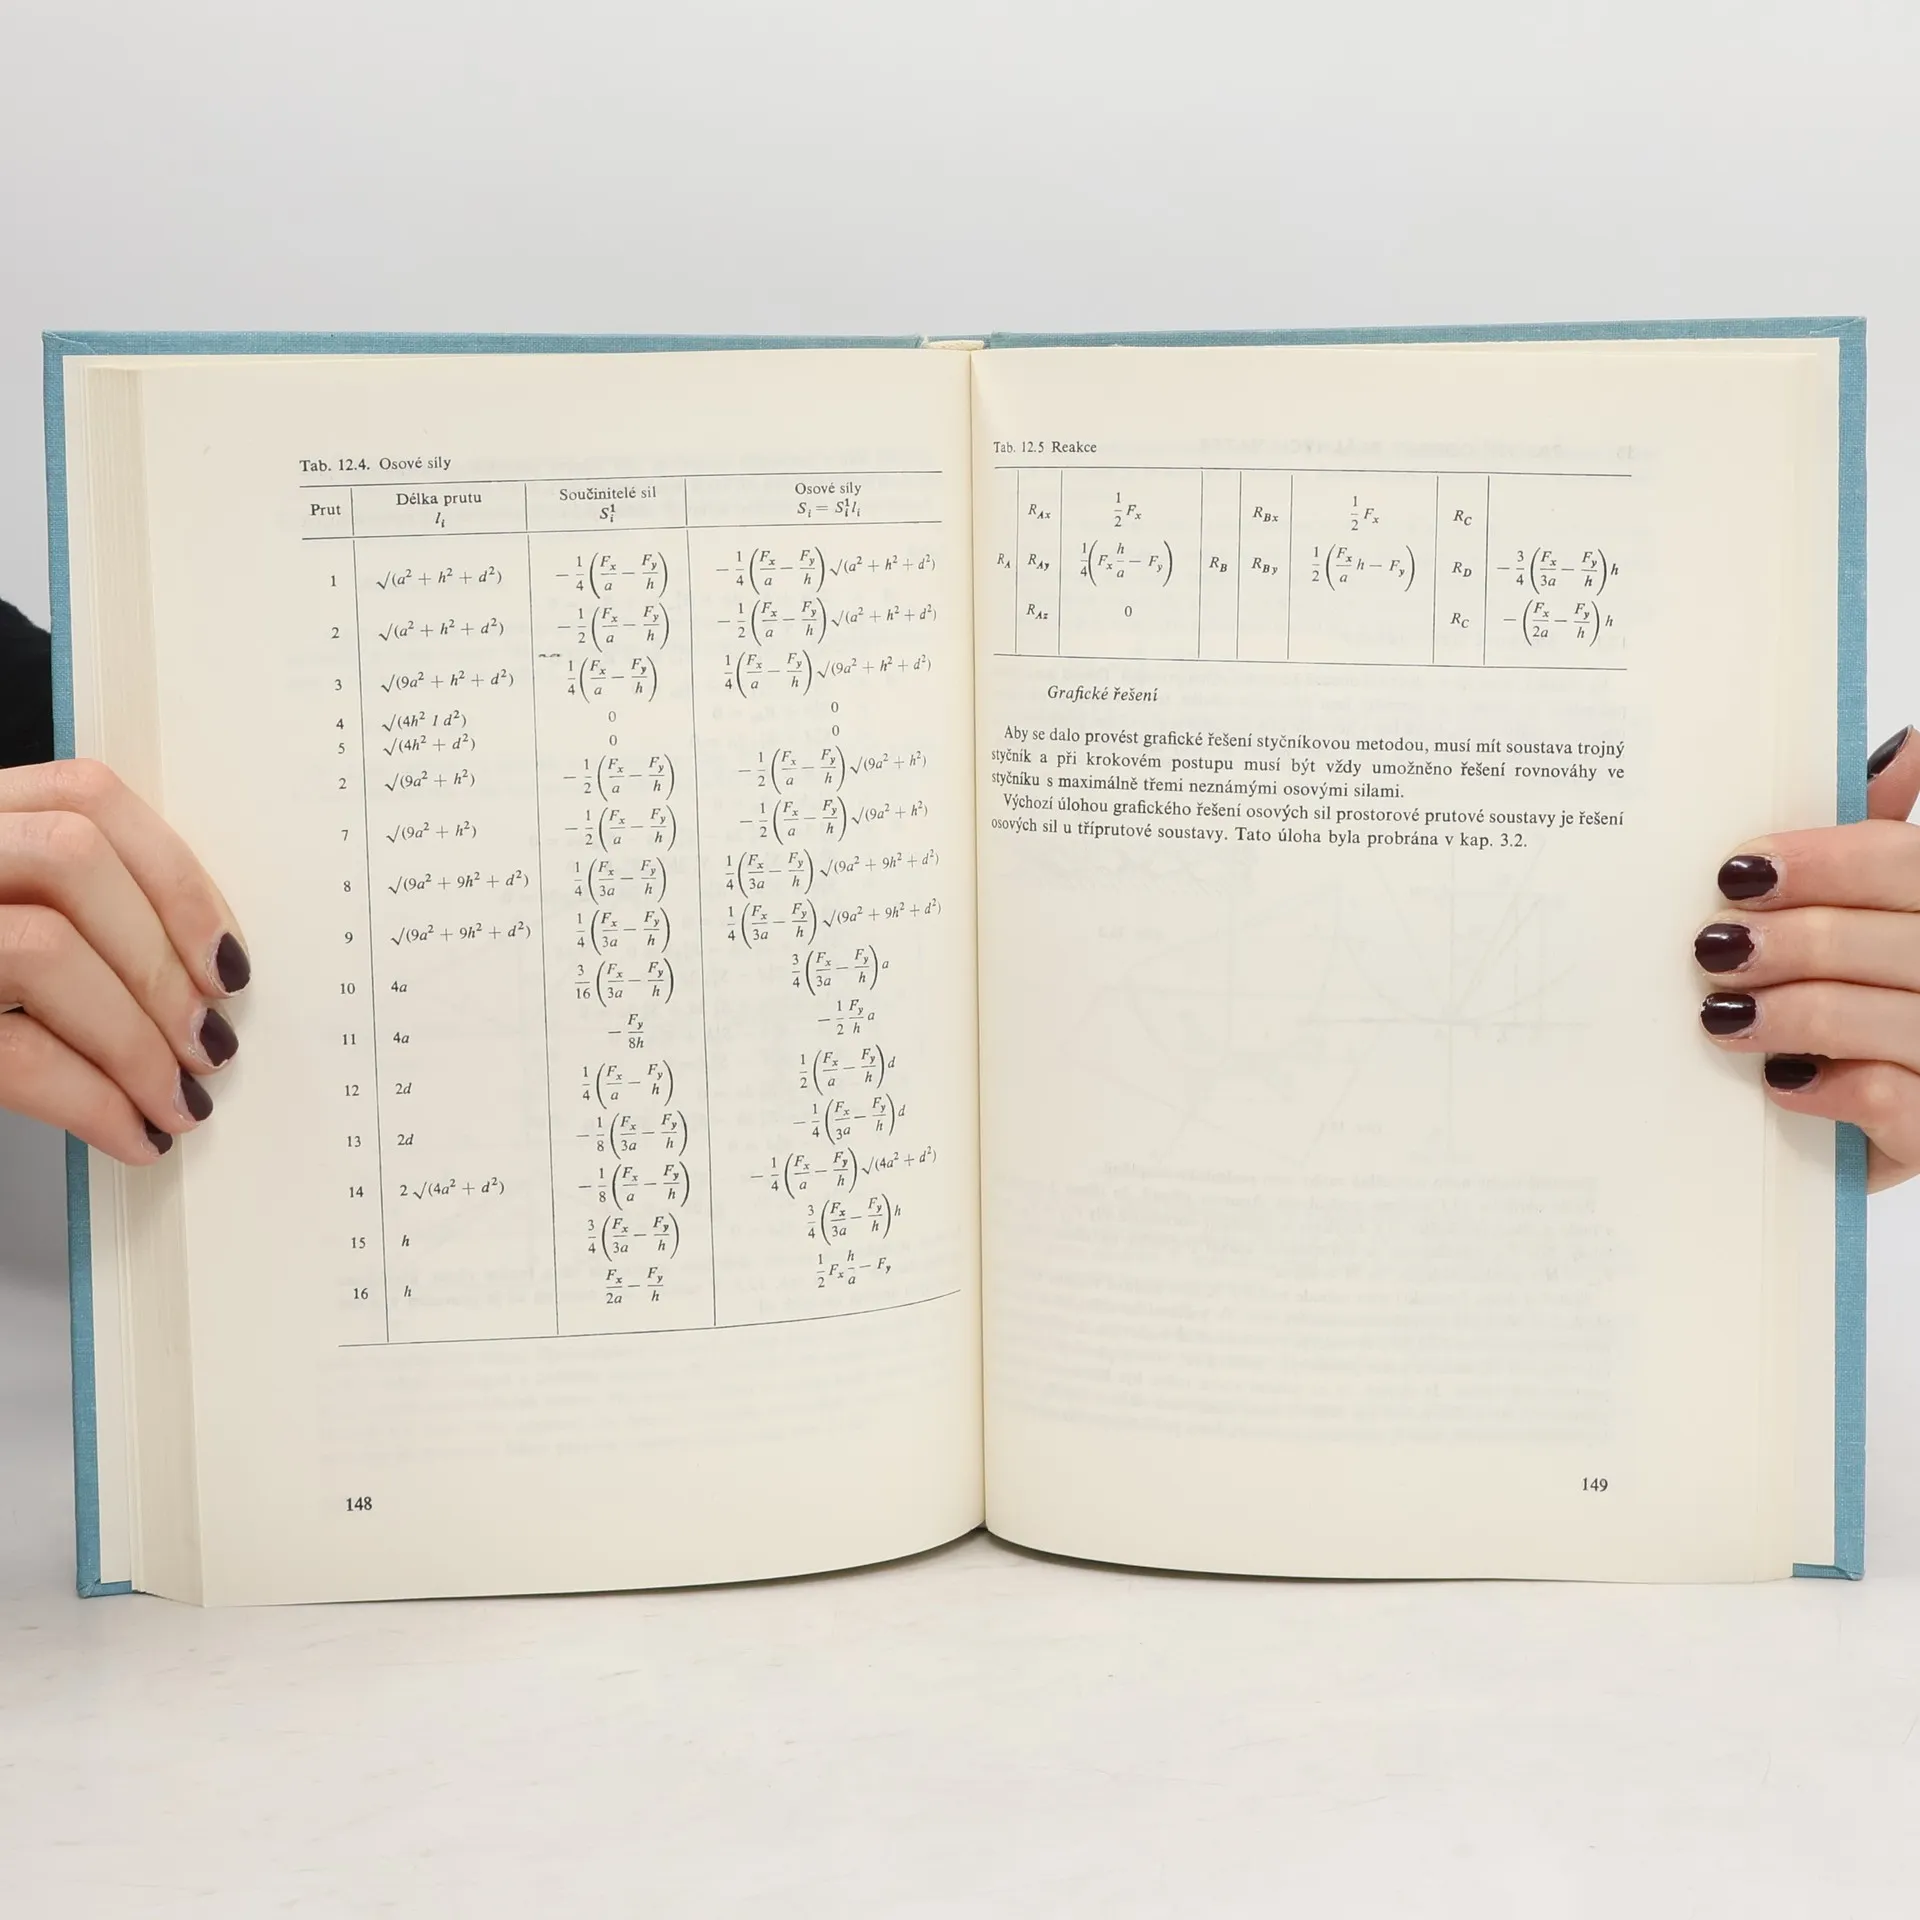 Tab. 12.4. Osové síly
Prut | Délka prutu lᵢ | Součinitelé sil Sᵢ¹ | Osové síly Sᵢ = Sᵢ¹lᵢ
1 | √(a² + h² + d²) | −1/4 (Fₓ/a − F_y/h) | −1/4 (Fₓ/a − F_y/h) √(a² + h² + d²)
2 | √(a² + h² + d²) | −1/2 (Fₓ/a − F_y/h) | −1/2 (Fₓ/a − F_y/h) √(a² + h² + d²)
3 | √(9a² + h² + d²) | 1/4 (Fₓ/a − F_y/h) | 1/4 (Fₓ/a − F_y/h) √(9a² + h² + d²)
4 | √(4h² 1 d²) | 0 | 0
5 | √(4h² + d²) | 0 | 0
2 | √(9a² + h²) | −1/2 (Fₓ/a − F_y/h) | −1/2 (Fₓ/a − F_y/h) √(9a² + h²)
7 | √(9a² + h²) | −1/2 (Fₓ/a − F_y/h) | −1/2 (Fₓ/a − F_y/h) √(9a² + h²)
8 | √(9a² + 9h² + d²) | 1/4 (Fₓ/3a − F_y/h) | 1/4 (Fₓ/3a − F_y/h) √(9a² + 9h² + d²)
9 | √(9a² + 9h² + d²) | 1/4 (Fₓ/3a − F_y/h) | 1/4 (Fₓ/3a − F_y/h) √(9a² + 9h² + d²)
10 | 4a | 3/16 (Fₓ/3a − F_y/h) | 3/4 (Fₓ/3a − F_y/h) a
11 | 4a | −F_y/8h | −1/2 F_y/h a
12 | 2d | 1/4 (Fₓ/a − F_y/h) | 1/2 (Fₓ/a − F_y/h) d
13 | 2d | −1/8 (Fₓ/3a − F_y/h) | −1/4 (Fₓ/3a − F_y/h) d
14 | 2 √(4a² + d²) | −1/8 (Fₓ/a − F_y/h) | −1/4 (Fₓ/a − F_y/h) √(4a² + d²)
15 | h | 3/4 (Fₓ/3a − F_y/h) | 3/4 (Fₓ/3a − F_y/h) h
16 | h | Fₓ/2a − F_y/h | 1/2 Fₓ h/a − F_y
148
Tab. 12.5 Reakce
R_Ax | 1/2 Fₓ | R_Bx | 1/2 Fₓ | R_C
R_A | R_Ay | 1/4 (Fₓ h/a − F_y) | R_B | R_By | 1/2 (Fₓ/a h − F_y) | R_D | −3/4 (Fₓ/3a − F_y/h) h
R_Az | 0 | R_C | −(Fₓ/2a − F_y/h) h
Grafické řešení
Aby se dalo provést grafické řešení styčníkovou metodou, musí mít soustava trojný
styčník a při krokovém postupu musí být vždy umožněno řešení rovnováhy ve
styčníku s maximálně třemi neznámými osovými silami.
Výchozí úlohou grafického řešení osových sil prostorové prutové soustavy je řešení
osových sil u tříprutové soustavy. Tato úloha byla probrána v kap. 3.2.
149